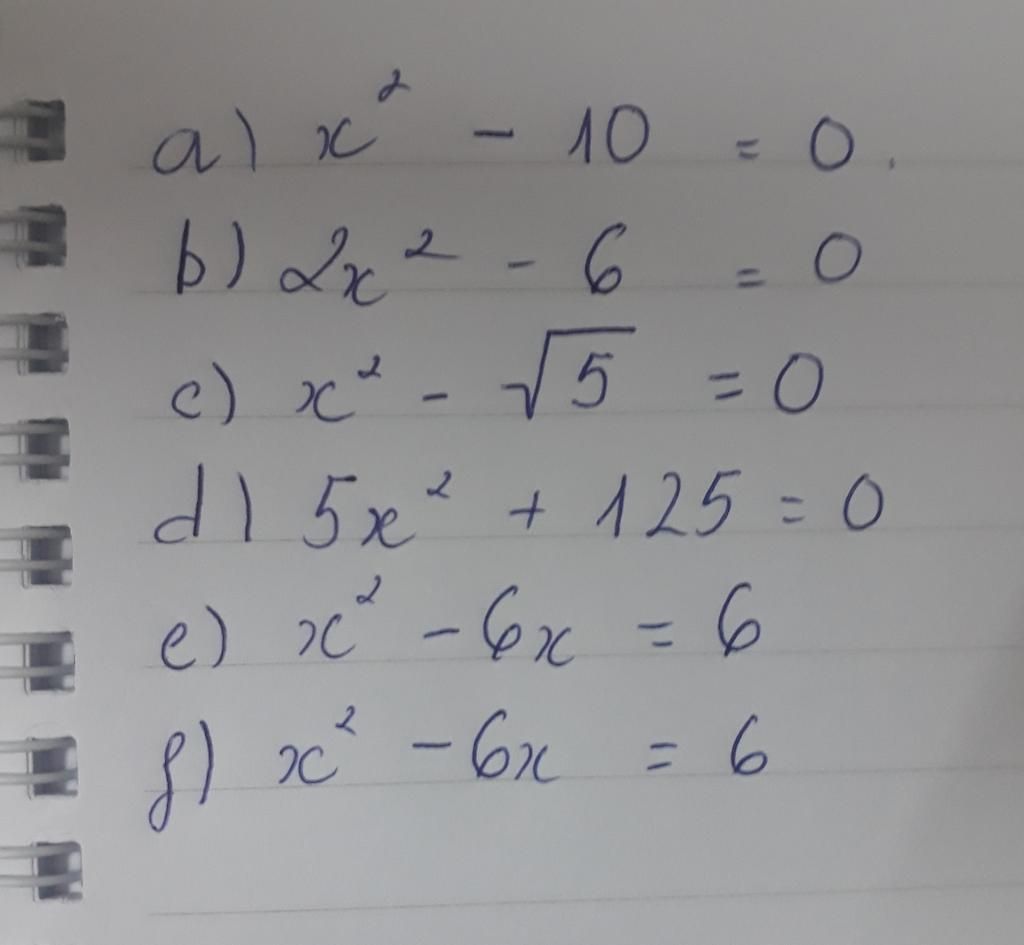 a) x² - 10 = 0.
b) 2x² - 6 = 0
c) x² - √5 = 0
d) 5x² + 125 = 0
e) x² - 6x = 6
f) x² - 6x = 6